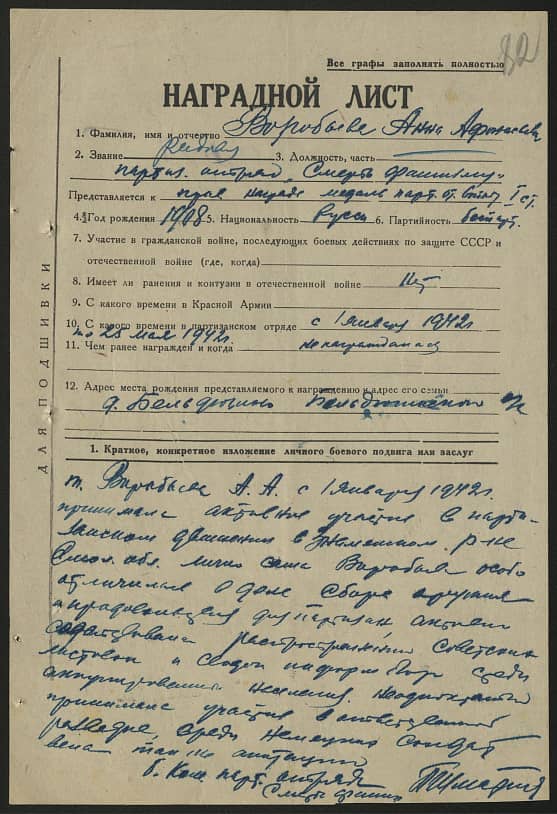 82
Все графы заполнять полностью
НАГРАДНОЙ ЛИСТ
1. Фамилия, имя и отчество Воробьева Анна Афанасьевна
2. Звание рядовая 3. Должность, часть
партиз. отряд „Смерть фашизму"
Представляется к прав. награде медаль парт. от. войны I ст.
4. Год рождения 1908 5. Национальность русск 6. Партийность беспарт.
7. Участие в гражданской войне, последующих боевых действиях по защите СССР и
отечественной войне (где, когда)
8. Имеет ли ранения и контузии в отечественной войне Нет
9. С какого времени в Красной Армии
10. С какого времени в партизанском отряде с 1 января 1942г.
по 25 мая 1942г.
11. Чем ранее награжден и когда не награждалась
12. Адрес места рождения представляемого к награждению и адрес его семьи
д. Бельдюгино Бельдюгинского с/с
ДЛЯ ПОДШИВКИ
1. Краткое, конкретное изложение личного боевого подвига или заслуг
т. Воробьева А. А. с 1 января 1942г.
принимала активное участие в парти-
занском движении в Знаменском р-не
Смол. обл. лично сама Воробьева особо
отличилась в деле сбора оружия
и продовольствия для партизан, активно
содействовала распространению Советских
листовок и сводок информбюро среди
оккупированного населения. неоднократно
принимала участие в ответственной
разведке, среди немецких солдат
вела также агитацию
б. Ком. парт. отряда
Смерть фашизму